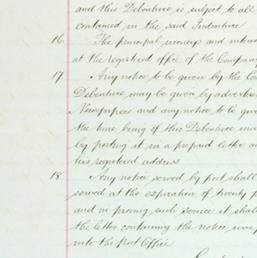 and this Debenture is subject to all
contained in the said Indenture
16 The principal moneys and interes
at the registered office of the Company
17 Any notice to be given by the Co
Debenture may be given by advertise
Newspapers and any notice to be give
the time being of this Debenture may
by posting it in a prepaid letter ad
his registered address
18 Any notice served by post shall
served at the expiration of twenty f
and in proving such service it shall
the letter containing the notice was p
into the Post Office